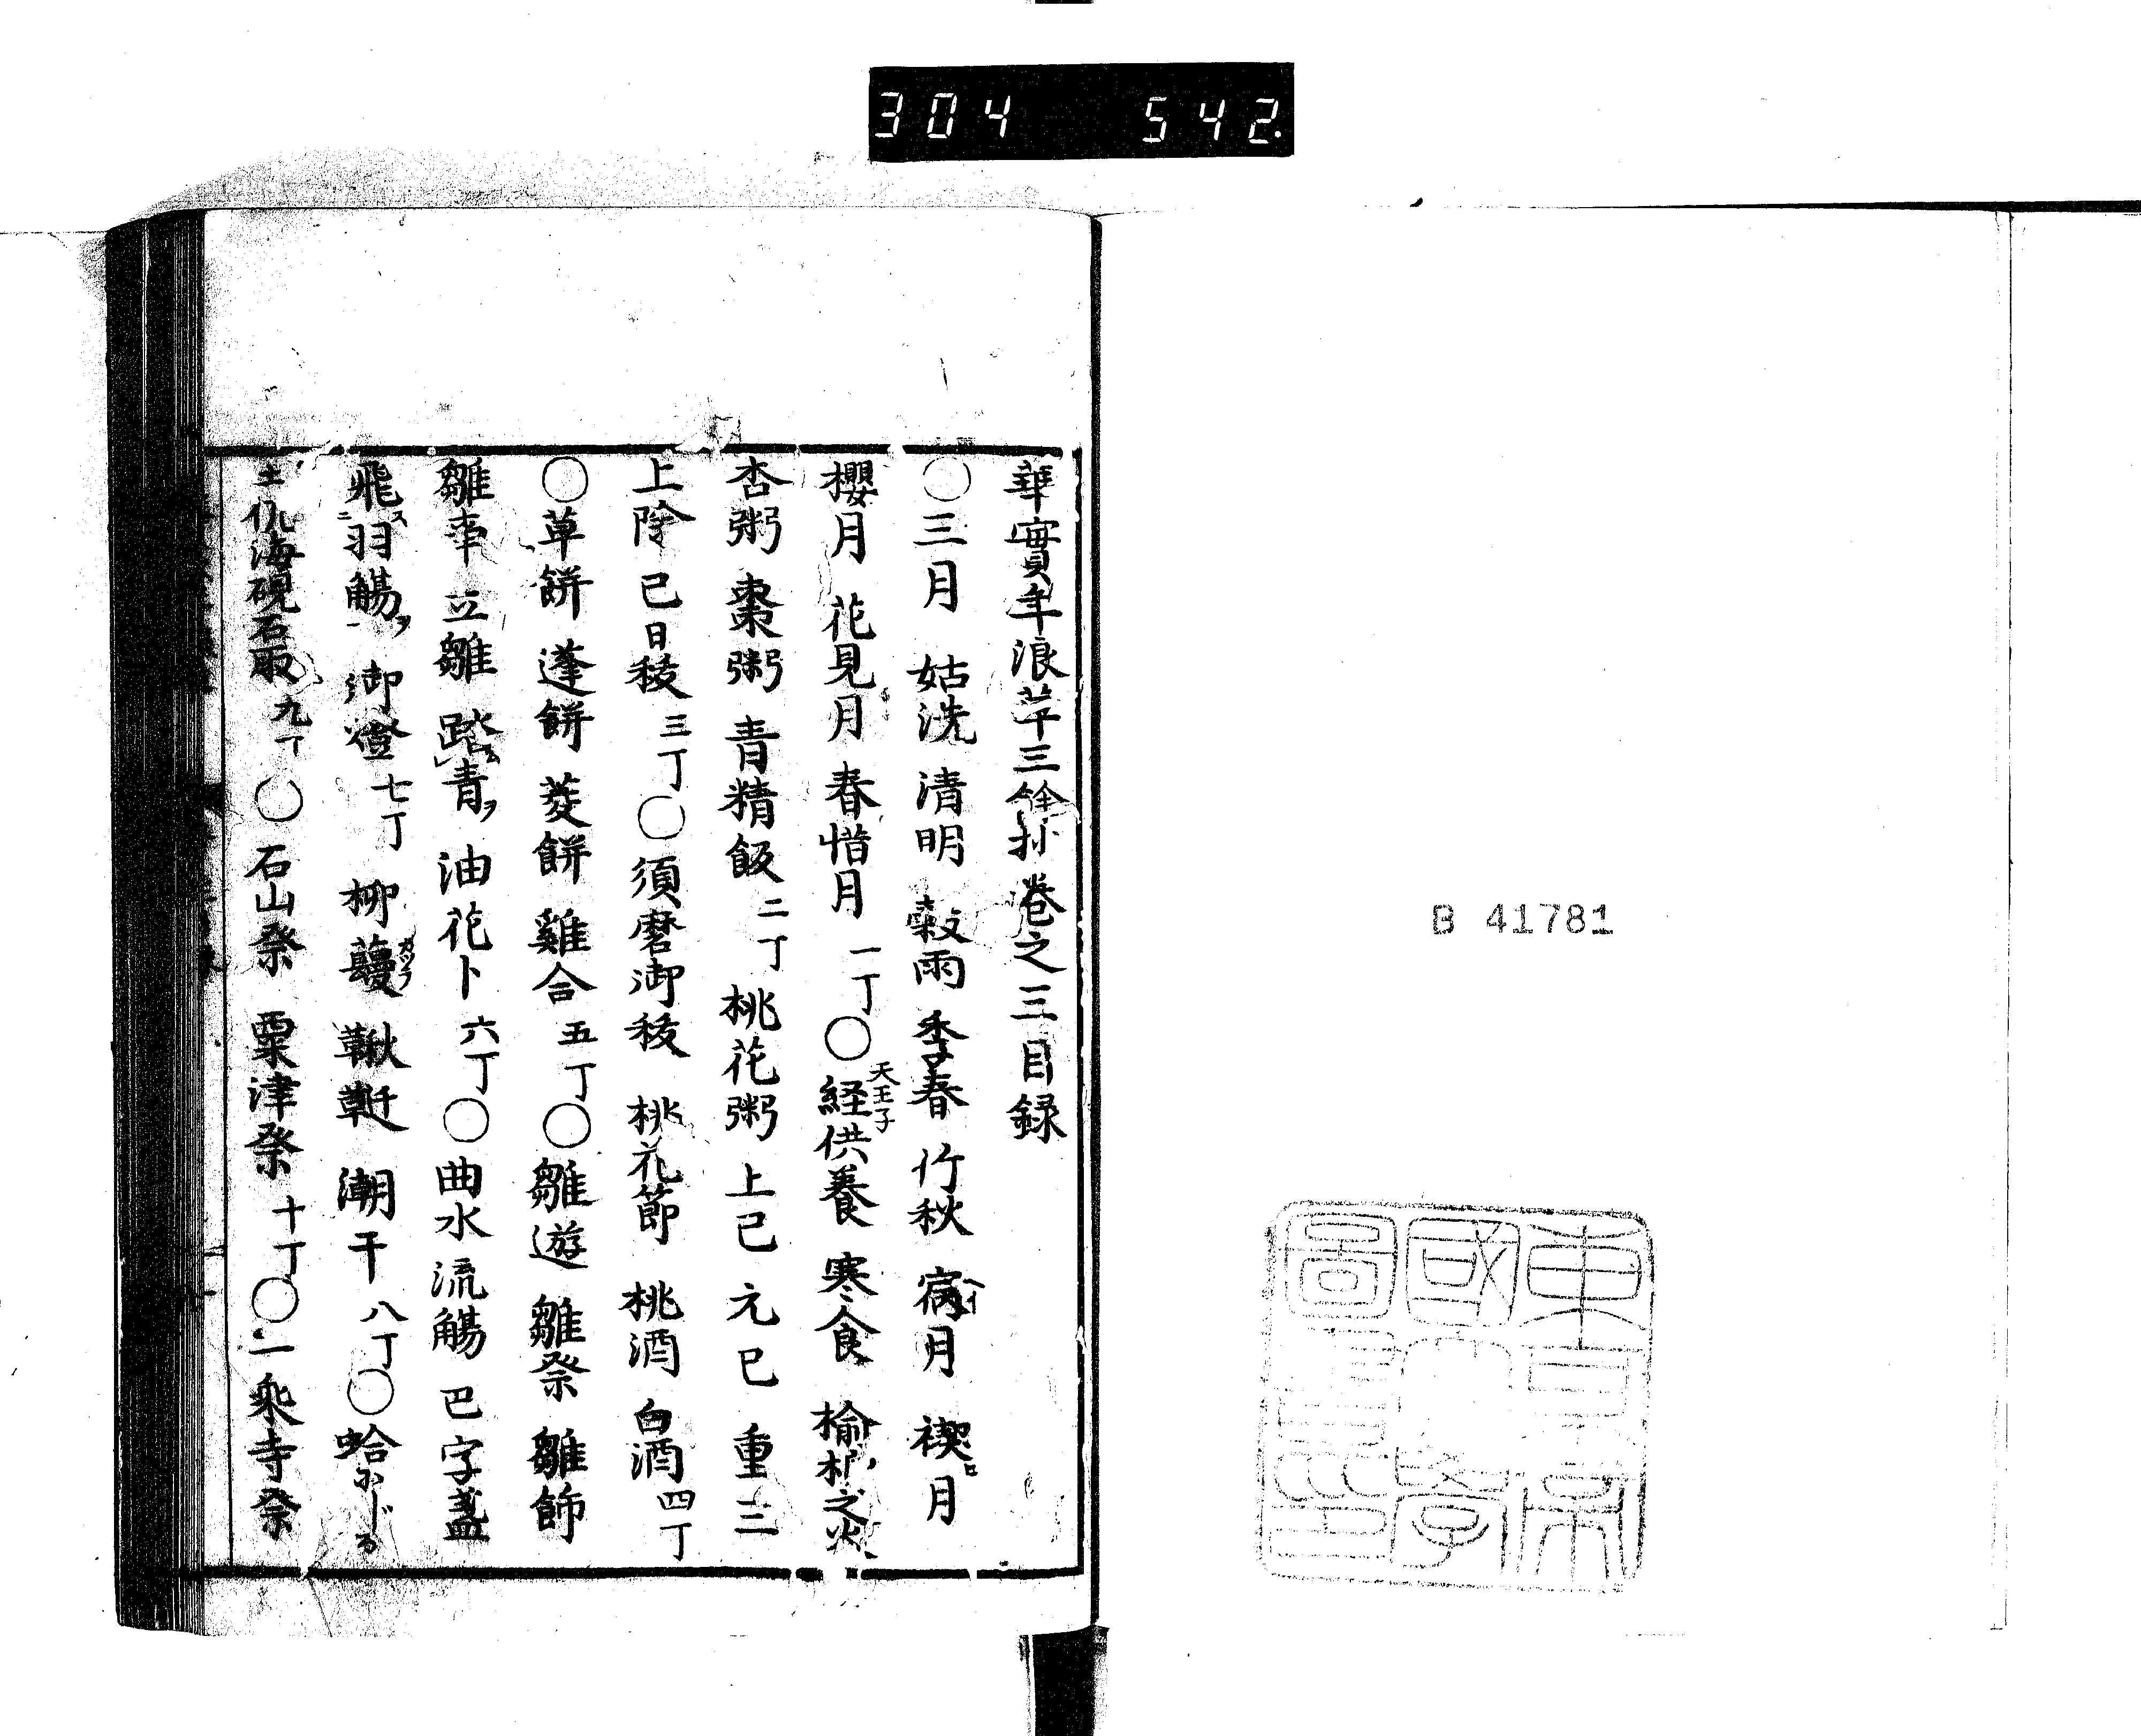 304 542.
B 41781
東京帝國大學圖書印
華實年浪草三餘抄卷之三目録
〇三月 姑洗 清明 穀雨 季春 竹秋 寎月 禊月
櫻月 花見月 春惜月 一丁〇天王寺経供養 寒食 榆柳之火
杏粥 棗粥 青精飯 二丁 桃花粥 上巳 元巳 重三
上除 巳日祓 三丁〇須磨御祓 桃花節 桃酒 白酒 四丁
〇草餅 蓬餅 菱餅 雞合 五丁〇雛遊 雛祭 雛飾
雛事 立雛 踏青ヲ 油花卜 六丁〇曲水 流觴 巴字盞
飛ス羽觴ヲ 御燈 七丁 柳蘰カツラ 鞦韆 潮干 八丁〇蛤
海硯石取 九丁〇石山祭 粟津祭 十丁〇一乘寺祭